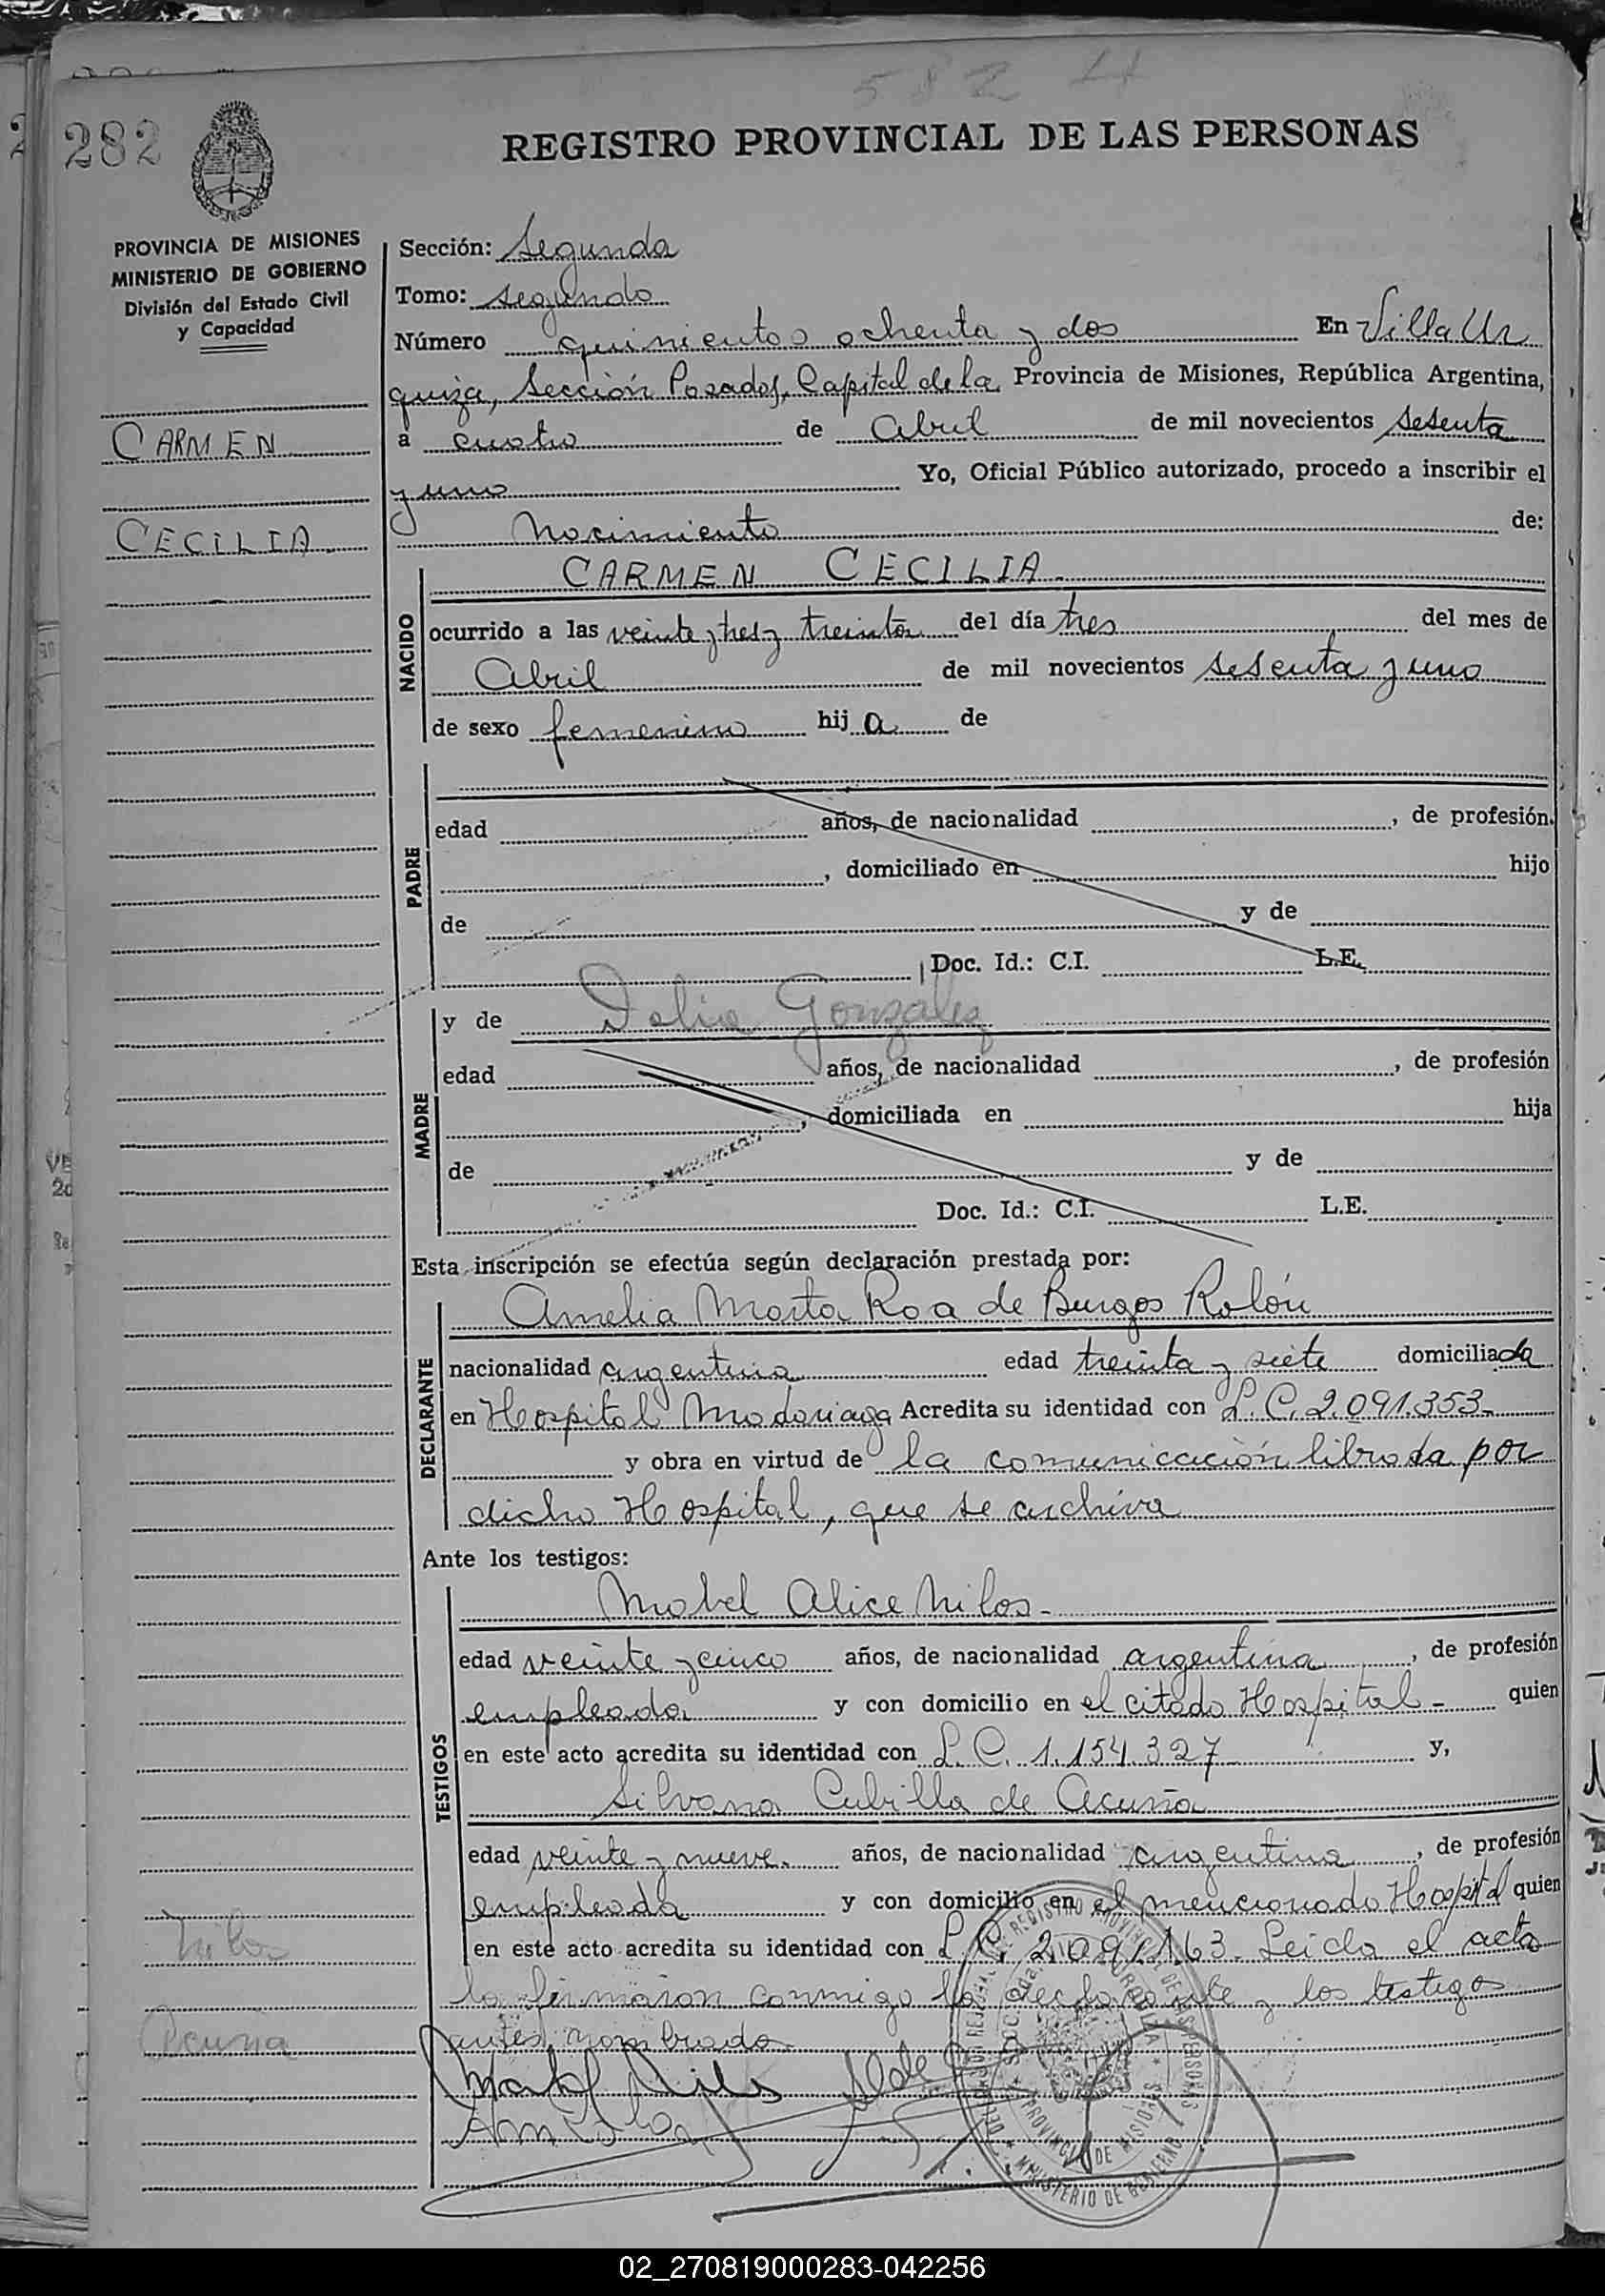 582
282
REGISTRO PROVINCIAL DE LAS PERSONAS
PROVINCIA DE MISIONES
MINISTERIO DE GOBIERNO
División del Estado Civil
y Capacidad
CARMEN
CECILIA
Sección: Segunda
Tomo: segundo
Número quinientos ochenta y dos En Villa Ur
quiza, Sección Posadas, Capital de la Provincia de Misiones, República Argentina,
a cuatro de Abril de mil novecientos sesenta
y uno Yo, Oficial Público autorizado, procedo a inscribir el
Nacimiento de:
CARMEN CECILIA
NACIDO
ocurrido a las veinte y tres y treinta del día tres del mes de
Abril de mil novecientos sesenta y uno
de sexo femenino hija de
PADRE
edad años, de nacionalidad , de profesión
, domiciliado en hijo
de y de
Doc. Id.: C.I. L.E.
MADRE
y de Delia Gonzalez
edad años, de nacionalidad , de profesión
, domiciliada en hija
de y de
Doc. Id.: C.I. L.E.
Esta inscripción se efectúa según declaración prestada por:
DECLARANTE
Amelia Marta Roa de Burgos Rolón
nacionalidad argentina edad treinta y siete domiciliada
en Hospital Madariaga Acredita su identidad con L.C. 2.091.353-
y obra en virtud de la comunicación librada por
dicho Hospital, que se archiva
Ante los testigos:
TESTIGOS
Mabel Alice Nilos-
edad veinte y cinco años, de nacionalidad argentina, de profesión
empleada y con domicilio en el citado Hospital - quien
en este acto acredita su identidad con L.C. 1.154.327 y,
Silvana Cubilla de Acuña
edad veinte y nueve. años, de nacionalidad argentina, de profesión
empleada y con domicilio en el mencionado Hospital quien
en este acto acredita su identidad con L.C. 2.091.163- Leida el acta
la firmaron conmigo la declarante y los testigos
antes nombrado-
Nilos
Acuña
PROVINCIA DE MISIONES
MINISTERIO DE GOBIERNO
02_270819000283-042256